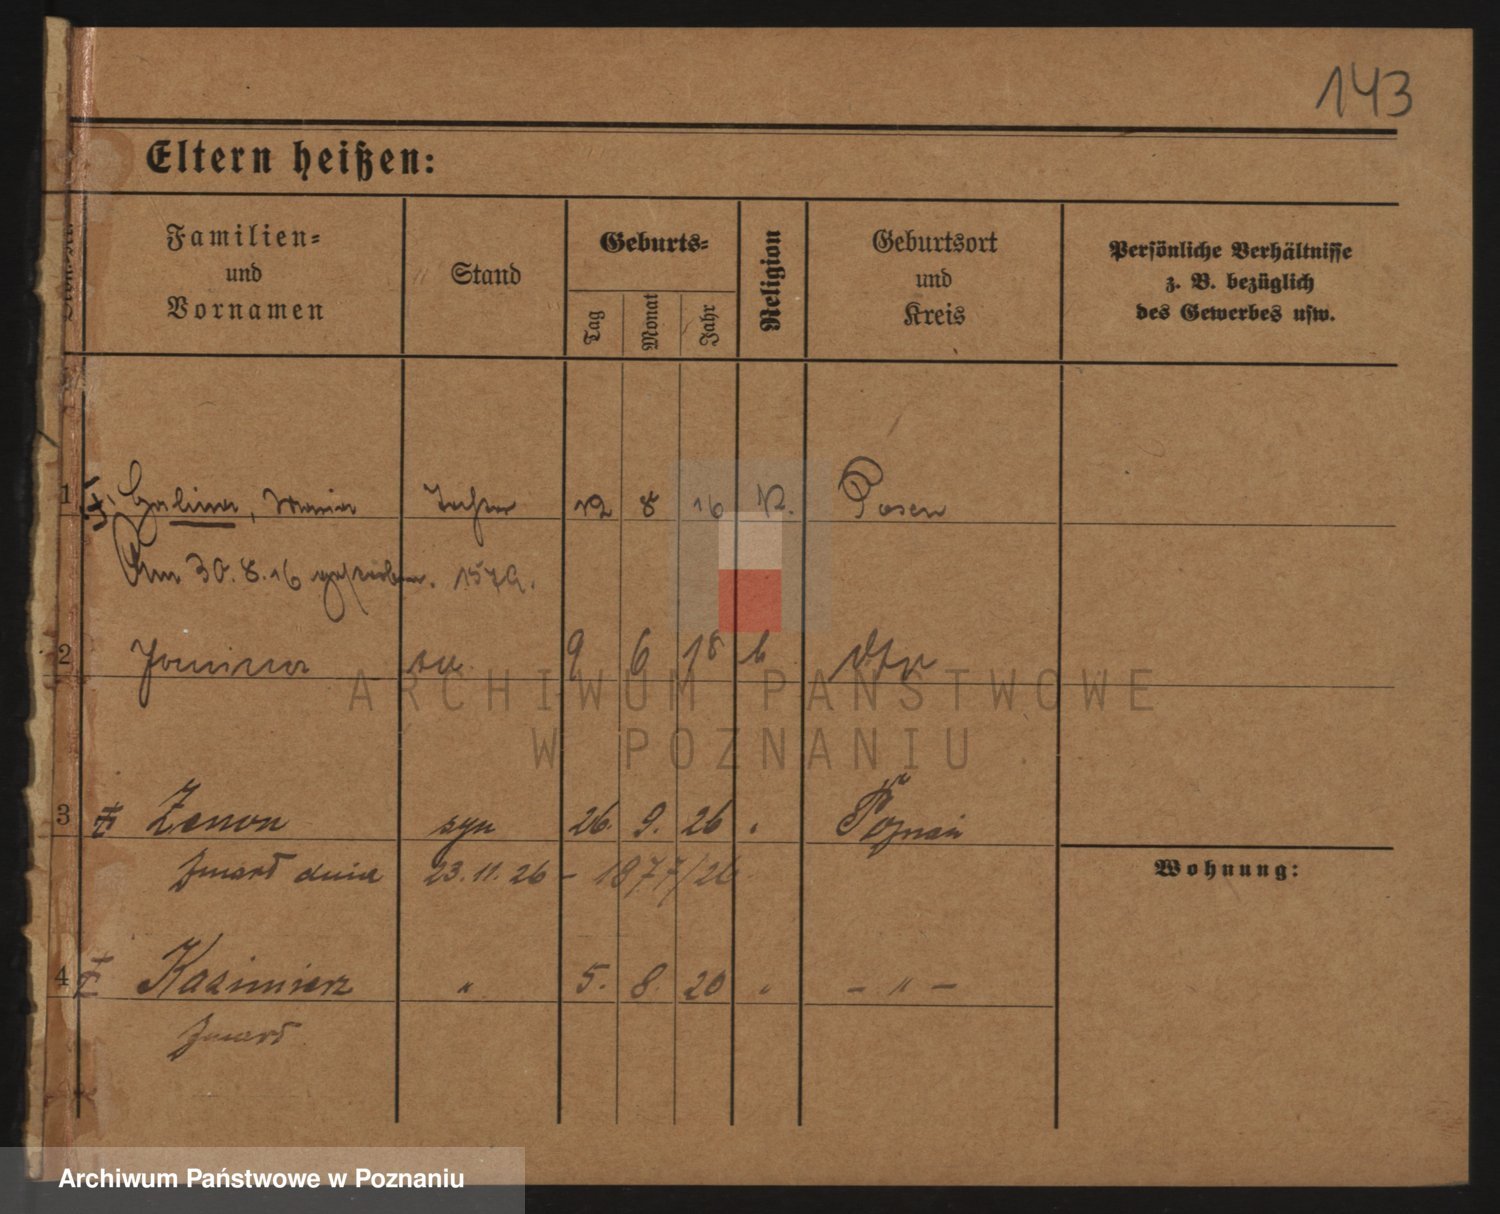 143
Eltern heißen:
Familien- und Vornamen
Stand
Geburts-
Tag
Monat
Jahr
Religion
Geburtsort und Kreis
Persönliche Verhältnisse z. B. bezüglich des Gewerbes usw.
1 Halina, Maria Tochter 12 8 16 Posen
Am 30.8.16 gestorben. 1579.
2 Janina 9 6 18
3 Zenon syn 26. 9. 26 Poznań
Zmarł dnia 23.11.26 – 1877/26
4 Kazimierz " 5. 8. 20 " – " –
Zmarł
Wohnung:
ARCHIWUM PAŃSTWOWE
W POZNANIU
Archiwum Państwowe w Poznaniu